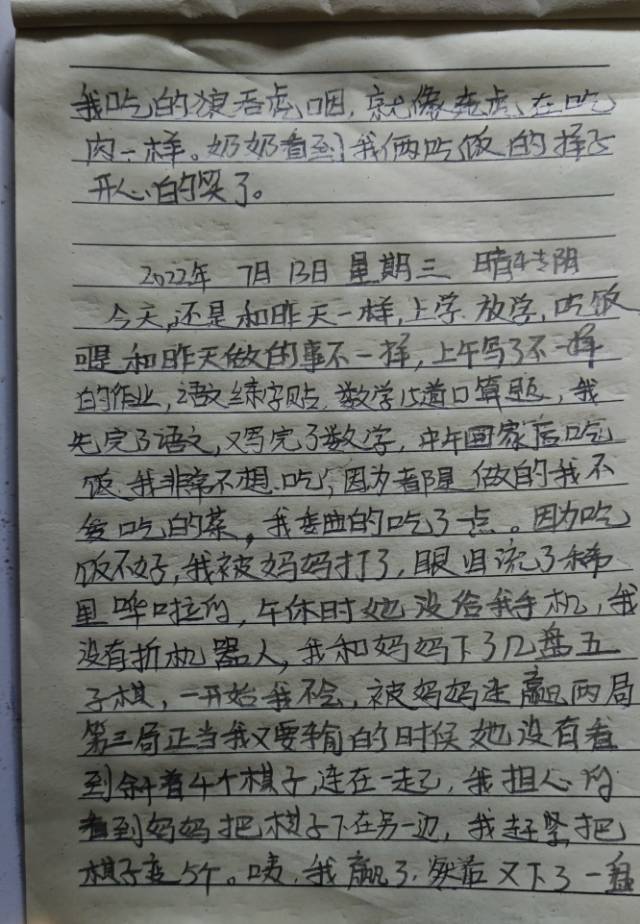 我吃的狼吞虎咽,就像老虎在吃
肉一样。奶奶看到我俩吃饭的样子
开心的笑了。
2022年 7月 13日 星期三 晴转阴
今天,还是和昨天一样,上学.放学,吃饭
可是和昨天做的事不一样,上午写了不一样
的作业,语文练字贴.数学15道口算题,我
先完了语文,又写完了数学,中午回家后吃
饭.我非常不想吃,因为都是做的我不
爱吃的菜,我委曲的吃了一点。因为吃
饭不好,我被妈妈打了,眼泪流了稀
里哗啦的,午休时她没给我手机,我
没有折机器人,我和妈妈下了几盘五
子棋,一开始我不会,被妈妈连赢两局
第三局正当我又要输的时候她没有看
到斜着4个棋子,连在一起了,我担心的
看到妈妈把棋子下在另一边,我赶紧把
棋子变5个。咦,我赢了.然后又下了一盘